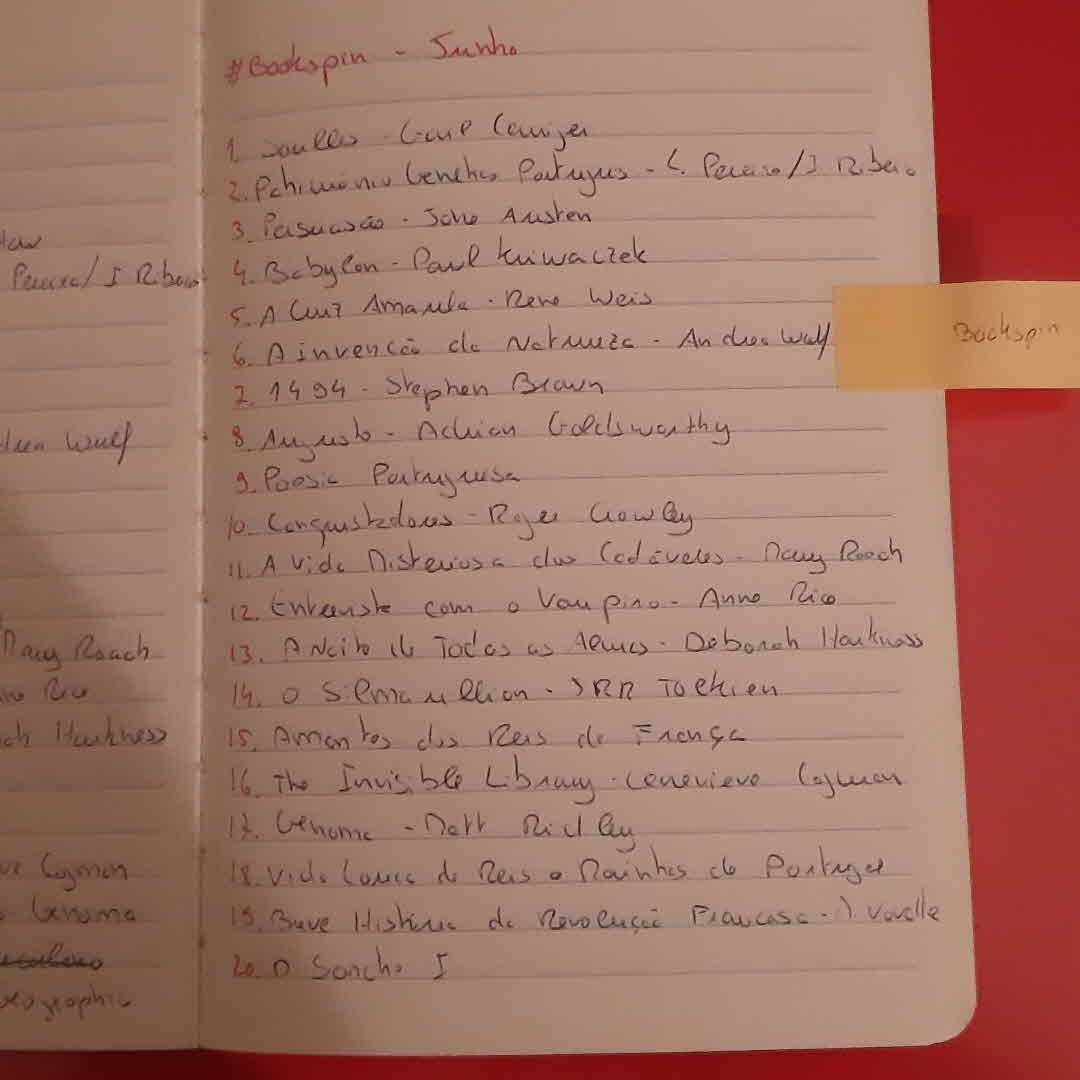 #Bookspin - Junho
1. Soulless - Gail Carriger
2. Património Genético Português - L. Pereira/ F. Ribeiro
3. Persuasão - Jane Austen
4. Babylon - Paul Kriwaczek
5. A Cruz Amarela - Rene Weis
6. A invenção da Natureza - Andrea Wulf
7. 1494 - Stephen Bown
8. Augusto - Adrian Goldsworthy
9. Poesia Portuguesa
10. Conquistadores - Roger Crowley
11. A Vida Misteriosa dos Cadáveres - Mary Roach
12. Entrevista com o Vampiro - Anne Rice
13. A Noite de Todas as Almas - Deborah Harkness
14. O Silmarillion - JRR Tolkien
15. Amantes dos Reis de França
16. The Invisible Library - Genevieve Cogman
17. Genoma - Matt Ridley
18. Vida Louca de Reis e Rainhas de Portugal
19. Breve História da Revolução Francesa - M. Vovelle
20. D Sancho I
Bookspin
Pereira/ F Ribeiro
Wulf
Mary Roach
Rice
Harkness
Cogman
Genoma